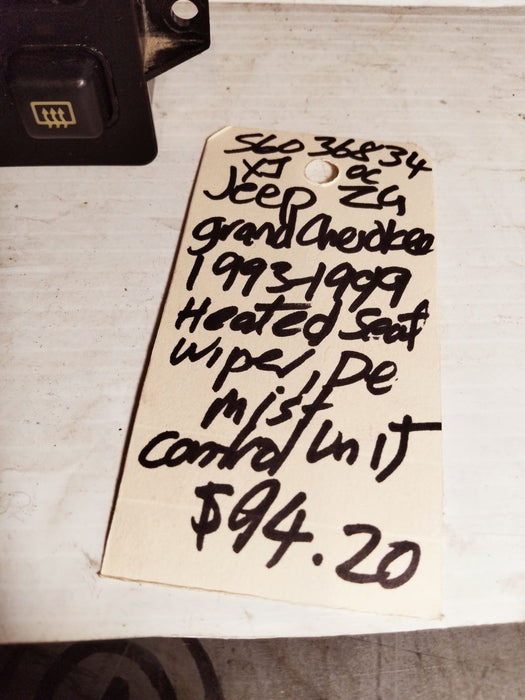 56036834
XJ OC
Jeep ZG
grand Cherokee
1993-1999
Heated Seat
wiper, De
mist
control Unit
$94.20